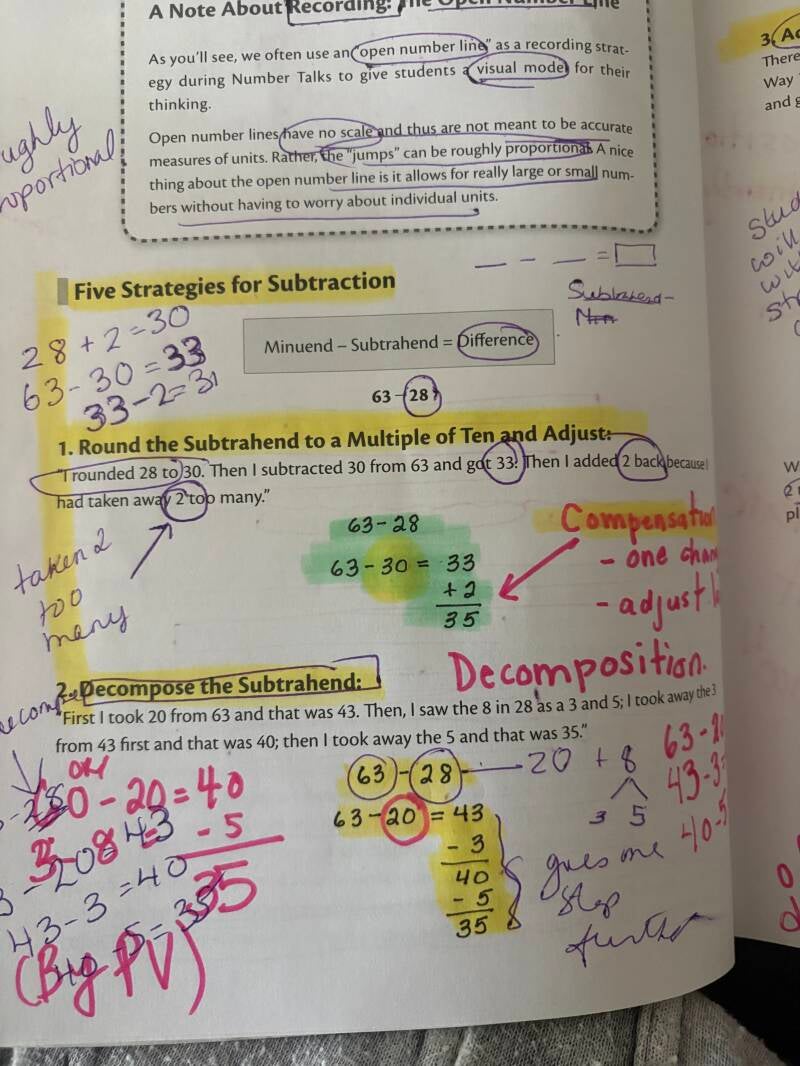 A Note About Recording: The Open Number Line
As you'll see, we often use an "open number line" as a recording strat-
egy during Number Talks to give students a visual model for their
thinking.
Open number lines have no scale and thus are not meant to be accurate
measures of units. Rather, the "jumps" can be roughly proportional. A nice
thing about the open number line is it allows for really large or small num-
bers without having to worry about individual units.
Five Strategies for Subtraction
Subtrahend-
28 + 2 = 30
63 - 30 = 33
33 - 2 = 31
Minuend – Subtrahend = Difference
63 – 28
1. Round the Subtrahend to a Multiple of Ten and Adjust:
"I rounded 28 to 30. Then I subtracted 30 from 63 and got 33. Then I added 2 back because I
had taken away 2 too many."
taken 2
too
many
63 - 28
63 - 30 = 33
+ 2
35
- one
- adjust
Decomposition.
2. Decompose the Subtrahend:
"First I took 20 from 63 and that was 43. Then, I saw the 8 in 28 as a 3 and 5; I took away the 3
from 43 first and that was 40; then I took away the 5 and that was 35."
63 - 28
20 + 8
3 5
63 - 20 = 43
- 3
40
- 5
35
gives one
step
further
0 - 20 = 40
- 5
35
43 - 3 = 40
(By PV)
3.
There
Way
and